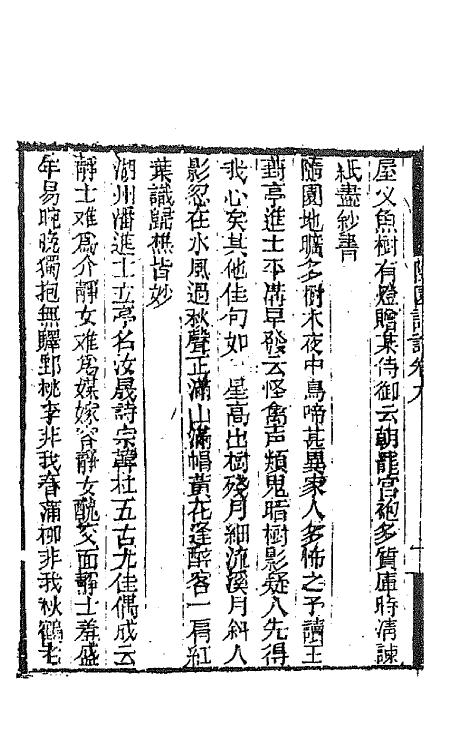 隨園詩話卷九
屋义魚樹有燈贈某侍御云朝罷宮袍多質庫時清諫
紙盡鈔書
隨園地曠多樹木夜中鳥啼甚異家人多怖之予讀王
葑亭進士平溝早發云怪禽声類鬼暗樹影疑人先得
我心矣其他佳句如 星高出樹殘月細流溪月斜人
影忽在水風過秋聲正滿山滿帽黃花逢醉客一肩紅
葉識歸樵皆妙
湖州潘進士立亭名汝晟詩宗韓杜五古尤佳偶成云
靜士难為介靜女难為媒嫁容靜女醜交面靜士羞盛
年易晼晚獨抱無驛郵桃李非我春蒲柳非我秋鶴老